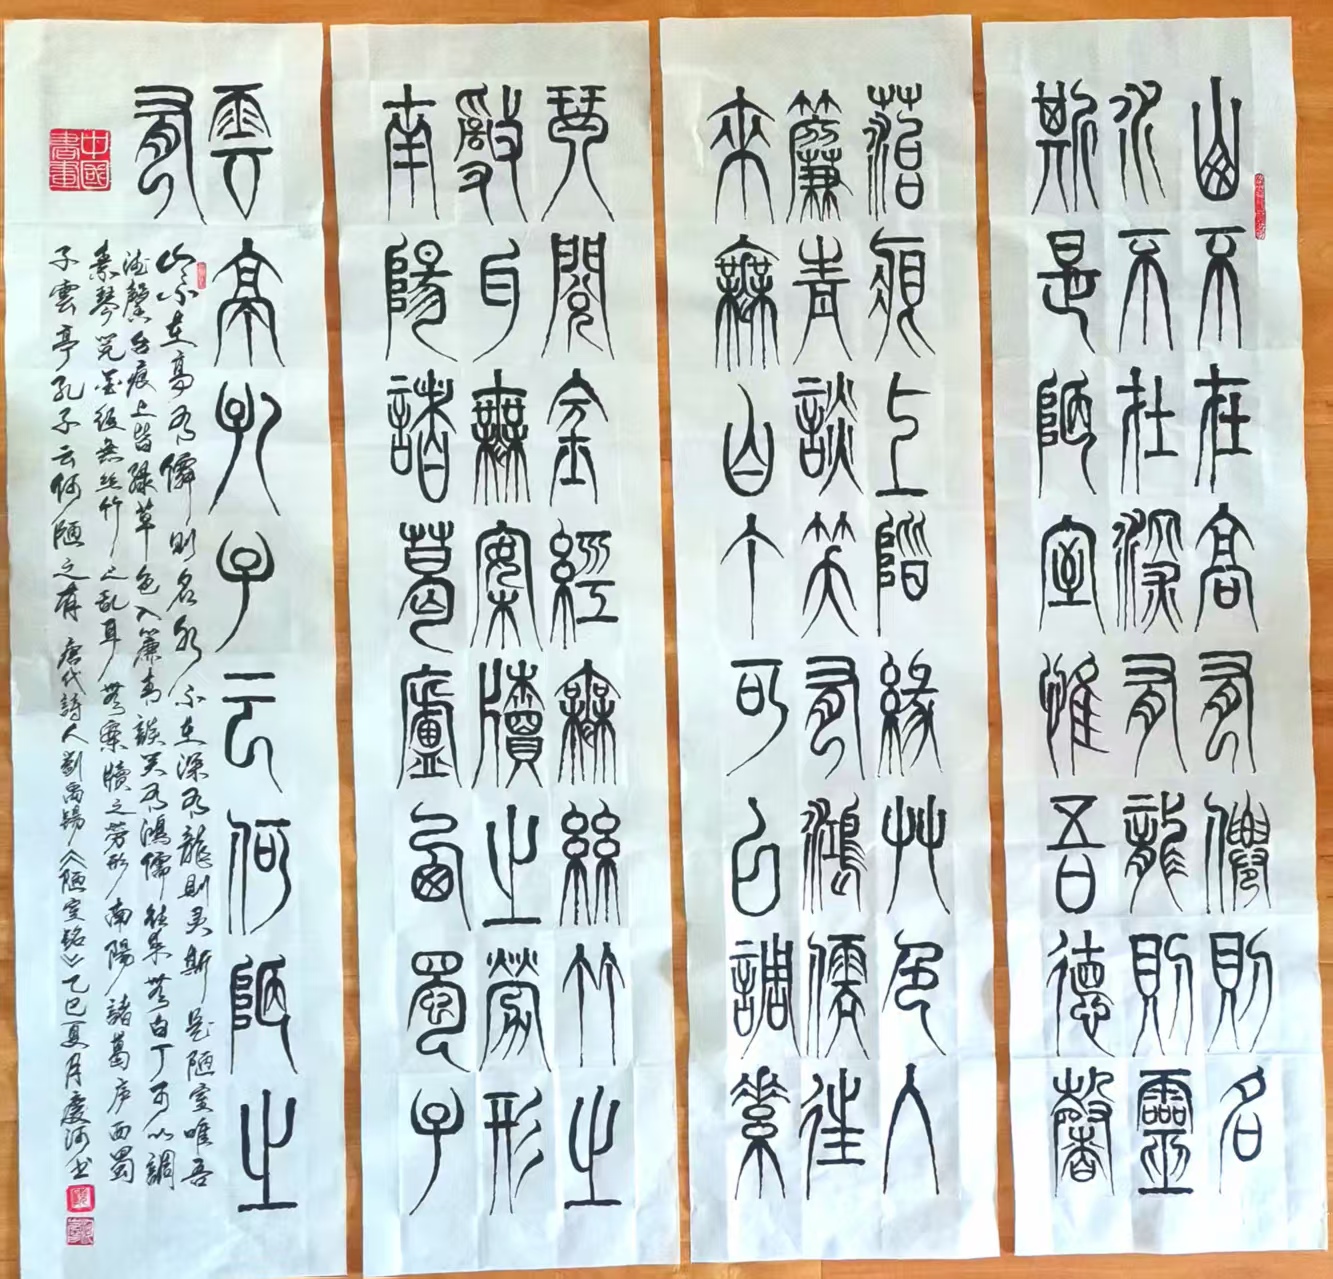 山不在高有僊則名
水不在深有龍則靈
斯是陋室惟吾德馨
菭痕上階綠艸色入
簾青談笑有鴻儒往
來無白丁可以調素
琴閱金經無絲竹之
亂耳無案牘之勞形
南陽諸葛廬西蜀子
雲亭孔子云何陋之
有
山不在高有僊则名水不在深有龍則灵斯是陋室唯吾
德馨苔痕上皆緑草色入簾青談笑有鴻儒往来無白丁可以調
素琴閲金经無丝竹之乱耳無案牘之劳形南陽諸葛庐西蜀
子雲亭孔子云何陋之有 唐代詩人劉禹錫《陋室銘》乙巳夏月慶河书
中國書畫